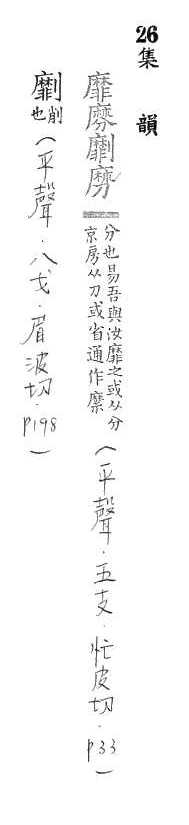 26集 韻
靡劘
分也易吾與汝靡之或从分
京房从刀或省通作糜
(平聲．五支．忙皮切．p33)
劘
削也
(平聲．八戈．眉波切．p198)